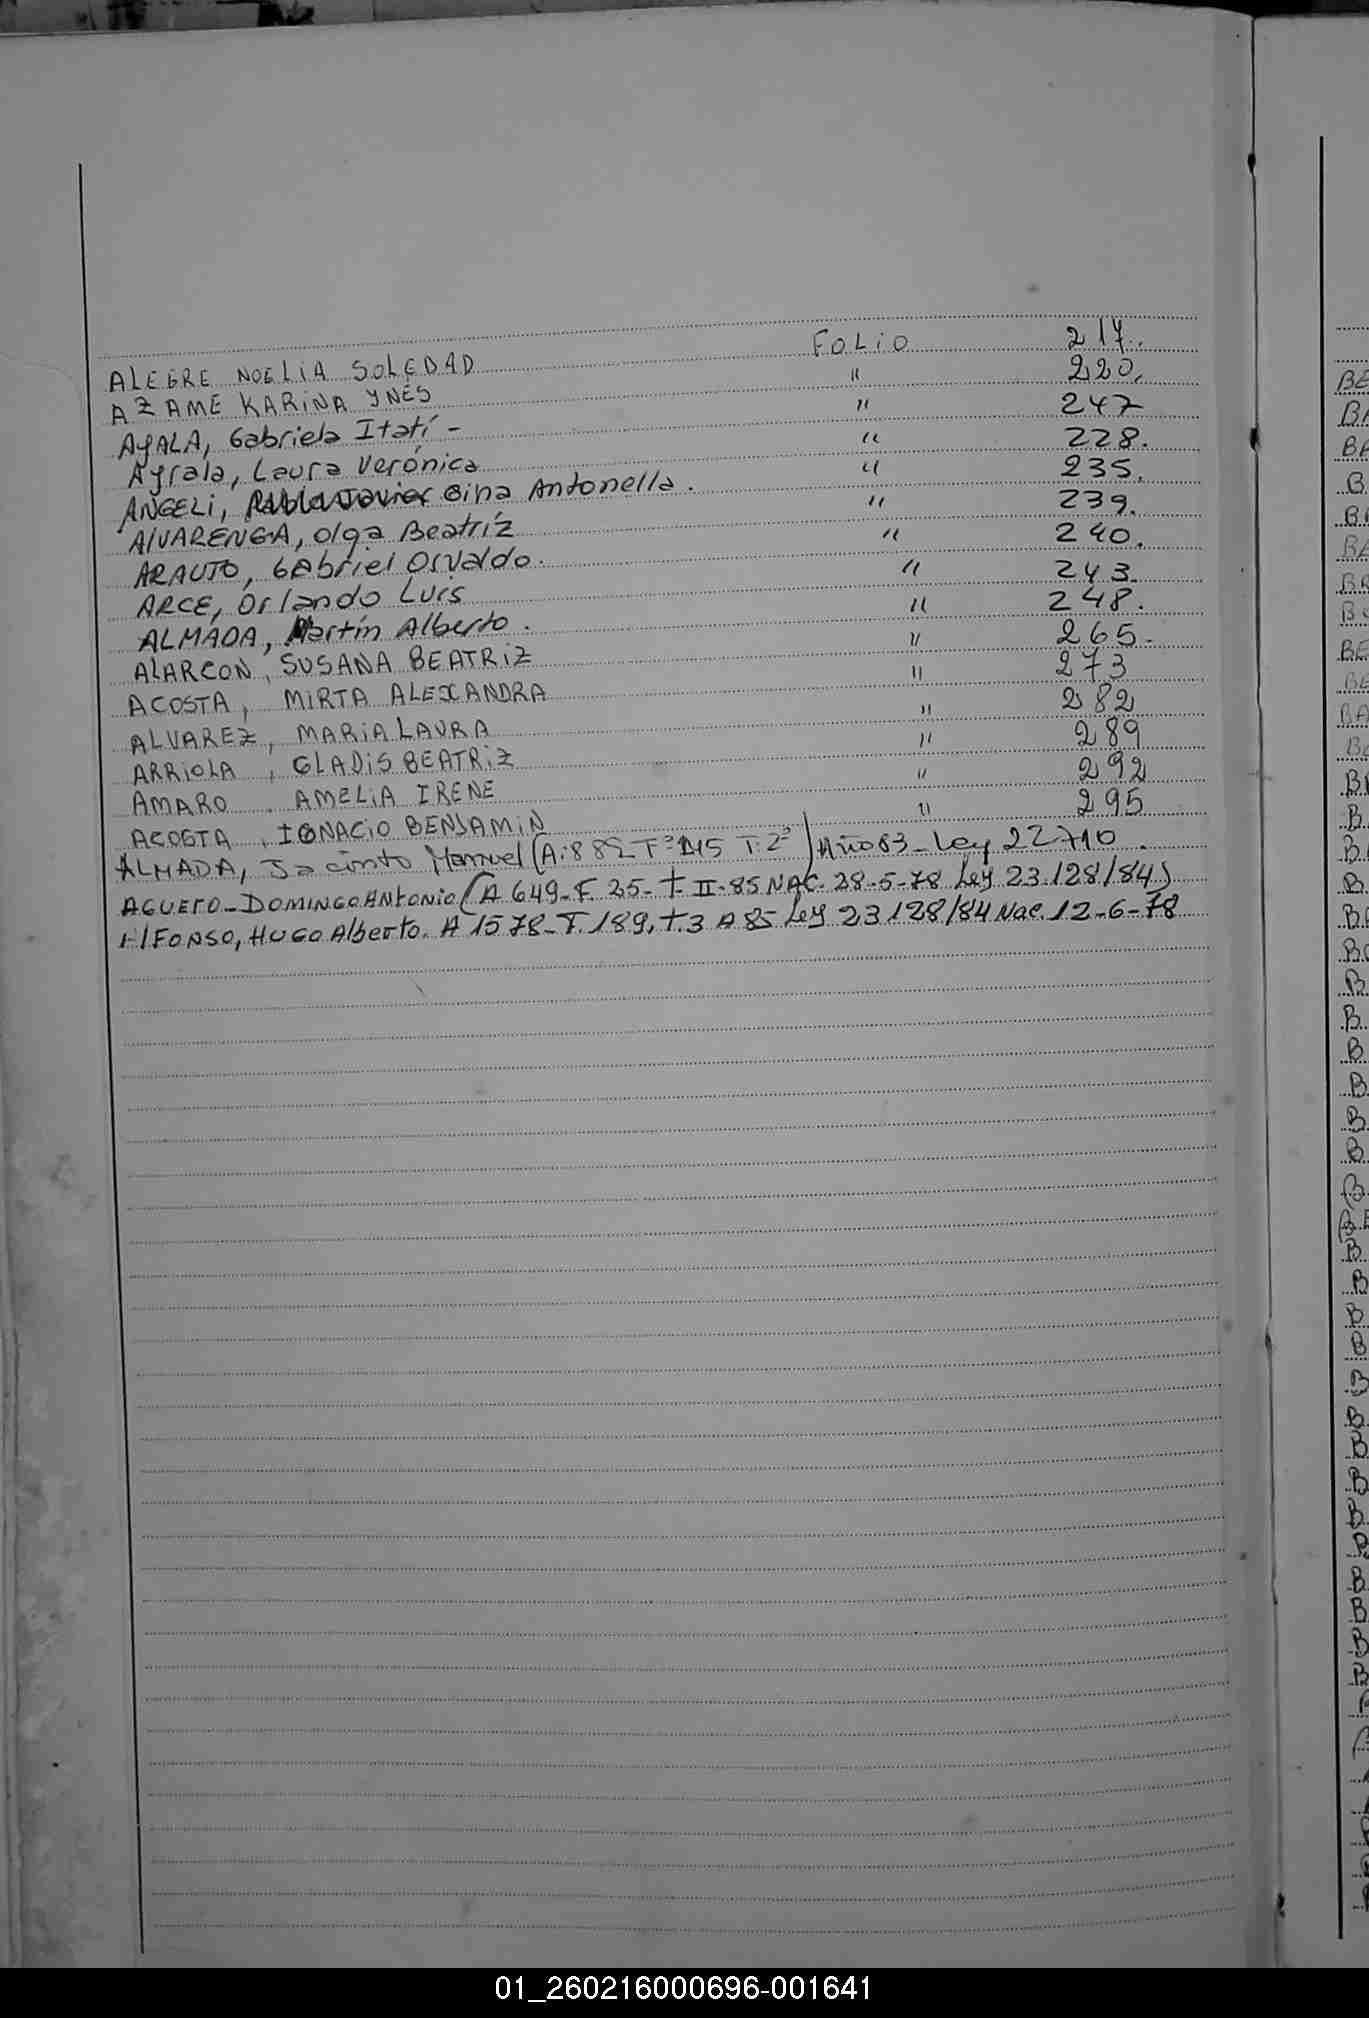 ALEGRE NOELIA SOLEDAD FOLIO 217.
AZAME KARINA YNÉS " 220.
AYALA, Gabriela Itatí - " 247
Ayrala, Laura Verónica " 228.
ANGELI, Gina Antonella. " 235.
AlVARENGA, Olga Beatríz " 239.
ARAUJO, Gabriel Osvaldo. " 240.
ARCE, Orlando Luis " 243.
ALMADA, Martín Alberto. " 248.
ALARCON, SUSANA BEATRIZ " 265.
ACOSTA, MIRTA ALEXANDRA " 273
ALVAREZ, MARIA LAURA " 282
ARRIOLA, GLADIS BEATRIZ " 289
AMARO, AMELIA IRENE " 292
ACOSTA, IGNACIO BENJAMIN " 295
ALMADA, Jacinto Manuel (A: 882 Año 83 - Ley 22710.
AGUERO - DOMINGO ANtonio (A 649 - F. 35 - t. II - 85 NAC. 28-5-78 Ley 23.128/84)
AlFONSO, HUGO Alberto. A 1578 - F. 189, t. 3 A 85 Ley 23128/84 Nac. 12-6-78
01_260216000696-001641